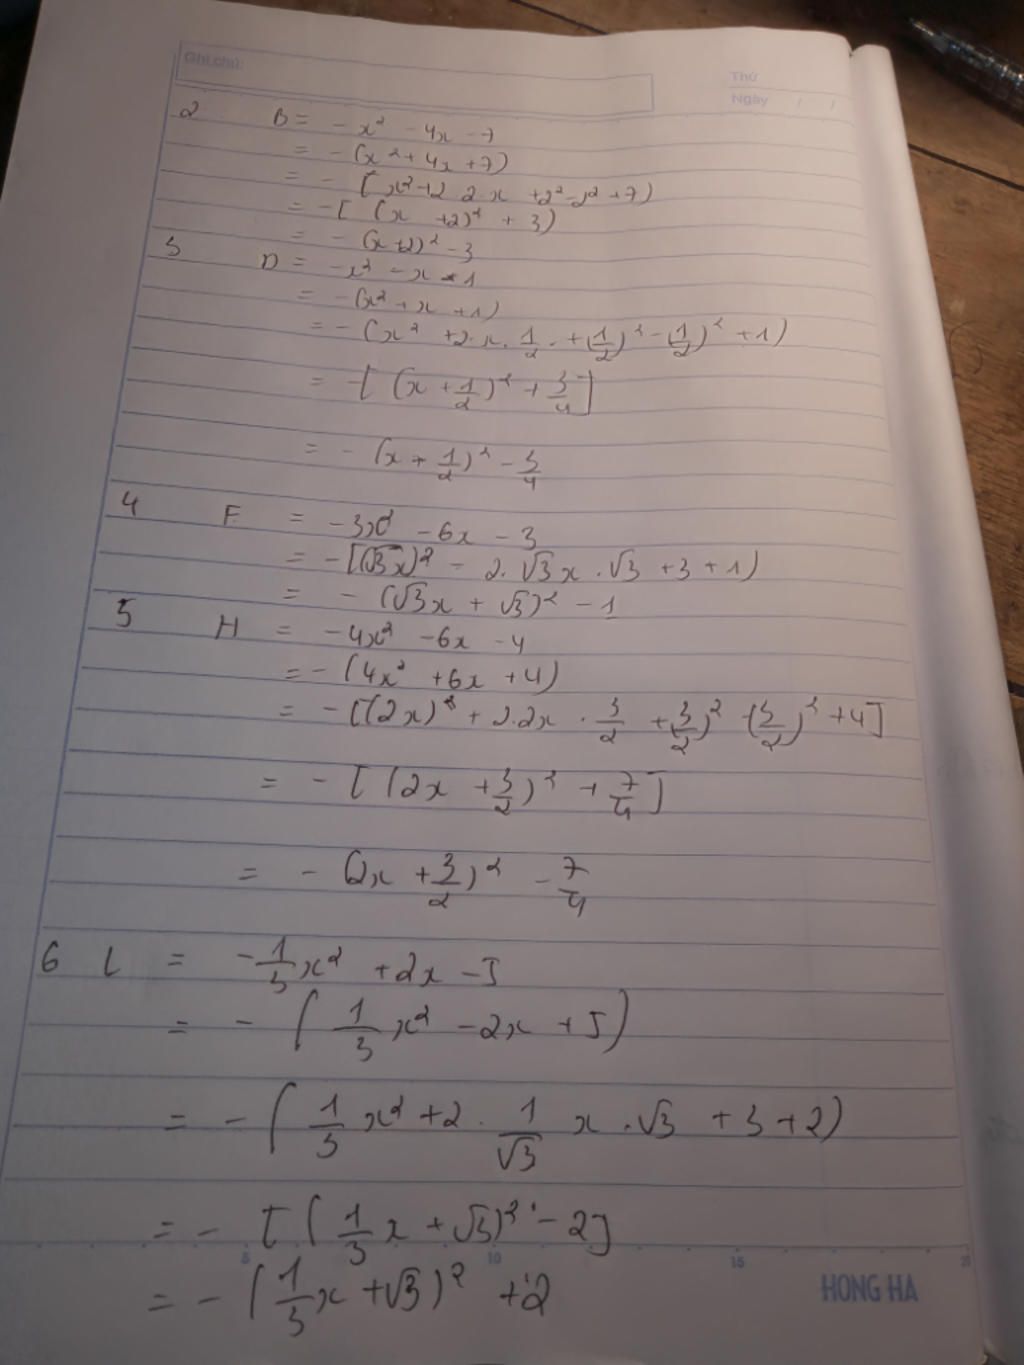 Ghi chú:
Thứ
Ngày / /
2 B = - x² - 4x - 7
= - (x² + 4x + 7)
= - [x² + 2.2.x + 2² - 2² + 7)
= - [ (x + 2)² + 3)
= - (x+2)² - 3
3 D = -x² - x - 1
= - (x² + x + 1)
= - (x² + 2.x.1/2 + (1/2)² - (1/2)² + 1)
= - [ (x + 1/2)² + 3/4 ]
= - (x + 1/2)² - 3/4
4 F = -3x² - 6x - 3
= - [(√3x)² - 2.√3x.√3 + 3 + 1)
= - (√3x + √3)² - 1
5 H = -4x² - 6x - 4
= - (4x² + 6x + 4)
= - [(2x)² + 2.2x . 3/2 + (3/2)² - (3/2)² + 4]
= - [ (2x + 3/2)² + 7/4 ]
= - (2x + 3/2)² - 7/4
6 L = -1/3x² + 2x - 5
= - ( 1/3x² - 2x + 5)
= - ( 1/3x² + 2 . 1/√3 x . √3 + 3 + 2)
= - [ ( 1/3x + √3)² - 2]
= - ( 1/3x + √3)² + 2
5 10 15
HONG HA